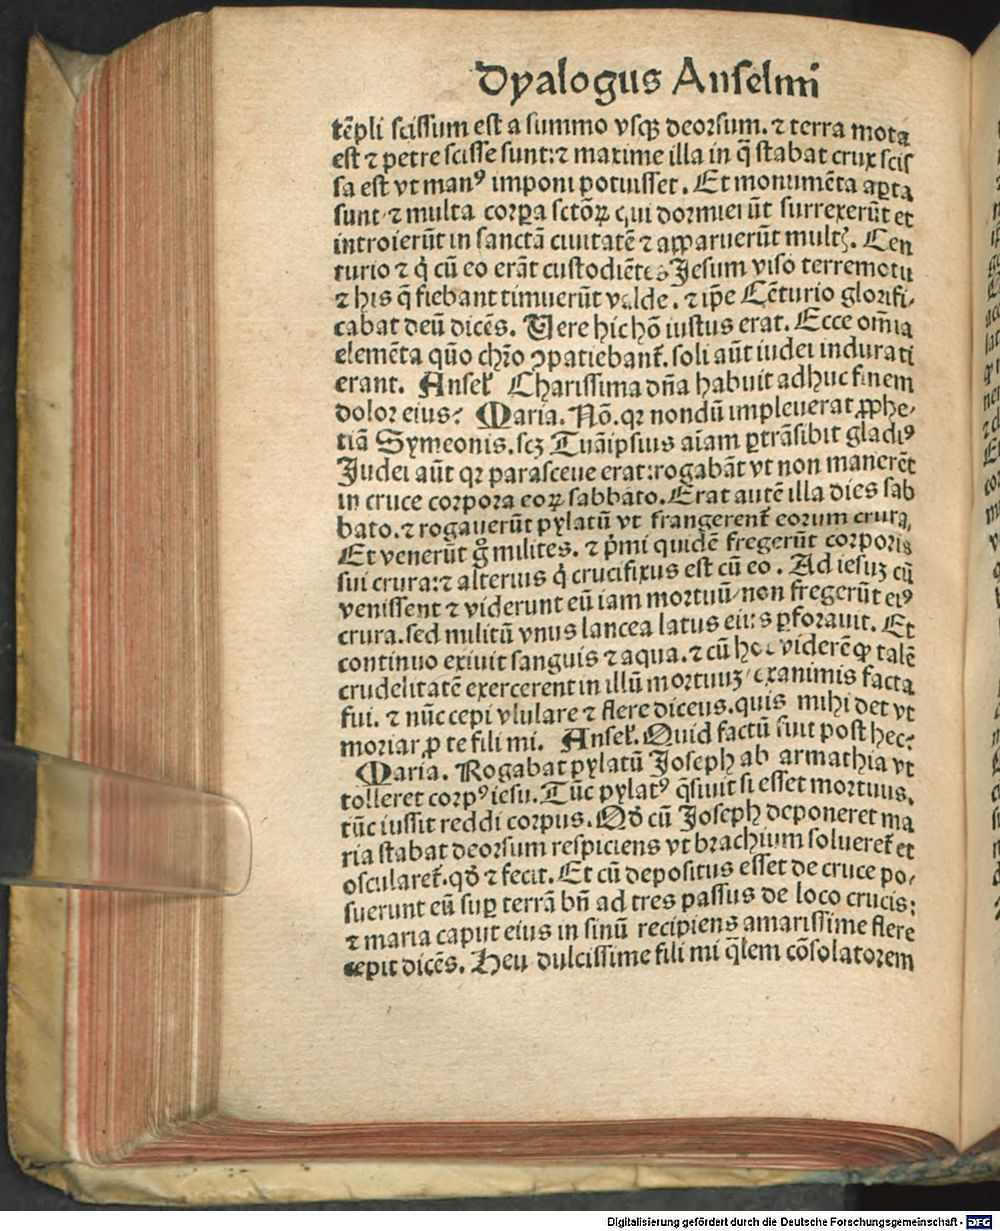 Dyalogus Anselmi
tēpli scissum est a summo vsqȝ deorsum. ⁊ terra mota
est ⁊ petre scisse sunt:⁊ maxime illa in q̄ stabat crux scis
sa est vt manꝰ imponi potuisset. Et monumēta aꝑta
sunt ⁊ multa corꝑa sctōꝝ qui dormierūt surrexerūt et
introierūt in sanctā ciuitatē ⁊ apparuerūt multꝭ. Cen
turio ⁊ q̇ cū eo erāt custodiētes Jesum viso terremotu
⁊ his q̄ fiebant timuerūt valde. ⁊ ip̄e Cēturio glorifi⸗
cabat deū dicēs. Uere hic hō iustus erat. Ecce om̄ia
elemēta q̄uo chr̄o ꝯpatiebant̄. soli aūt iudei indurati
erant. Ansel̄ Charissima dn̄a habuit adhuc finem
dolor eius? Maria. Nō. qr nondū impleuerat ꝓphe⸗
tiā Symeonis. scȝ Tuāipsius aīam ꝑtrāsibit gladiꝰ
Judei aūt qr parasceue erat:rogabāt vt non manerēt
in cruce corpora eoꝝ sabbato. Erat autē illa dies sab
bato. ⁊ rogauerūt pylatū vt frangerent̄ eorum crura,
Et venerūt gͦ milites. ⁊ pͥmi quidē fregerūt corporis
sui crura:⁊ alterius q̇ crucifixus est cū eo. Ad iesuȝ cū
venissent ⁊ viderunt eū iam mortuū non fregerūt eiꝰ
crura. sed militū vnus lancea latus eius ꝑforauit. Et
continuo exiuit sanguis ⁊ aqua. ⁊ cū hoc viderē ꝙ talē
crudelitatē exercerent in illū mortuuȝ exanimis facta
fui. ⁊ nūc cepi vlulare ⁊ flere dicens. quis mihi det vt
moriar ꝓ te fili mi. Ansel̄. Quid factū fuit post hec?
Maria. Rogabat pylatū Joseph ab armathia vt
tolleret corpꝰ iesu. Tūc pylatꝰ q̄siuit si esset mortuus.
tūc iussit reddi corpus. Qd̄ cū Joseph deponeret ma
ria stabat deorsum respiciens vt brachium solueret̄ et
oscularet̄. qd̄ ⁊ fecit. Et cū depositus esset de cruce po⸗
suerunt eū suꝑ terrā bn̄ ad tres passus de loco crucis:
⁊ maria caput eius in sinū recipiens amarissime flere
cepit dicēs. Heu dulcissime fili mi q̄lem cōsolatorem
Digitalisierung gefördert durch die Deutsche Forschungsgemeinschaft - DFG